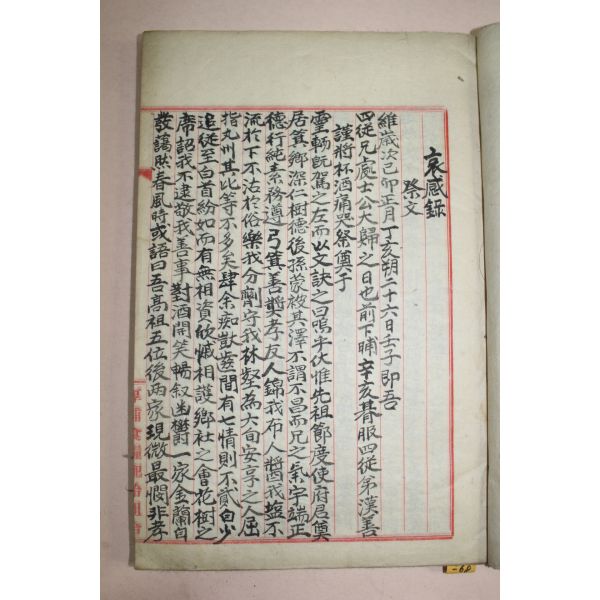 哀感錄
祭文
維歲次己卯正月丁亥朔二十六日壬子卽吾
四從兄處士公大歸之日也前下晡辛亥朞服四從弟漢善
謹將杯酒痛哭祭奠于
靈輀旣駕之左而以文訣之曰嗚乎伏惟先祖節度使府君奠
居箕鄕深仁樹德後孫蒙被其澤不謂不昌而兄之氣宇端正
德行純素務遵弓箕善奬孝友人錦我布人醬我塩不
流於下不沽於俗樂我分劑守我林壑為六旬安享之人屈
指九州其比等不多矣肆余痴獃齒間有七情則不貳自少
追從至白首紛如而有無相資欣慽相護鄕社之會花樹之
席詔我不逮敬我善事對酒開笑暢叙幽欝一家金蘭自
發藹肰春風時或語曰吾高祖五位後兩家現微最憫非孝